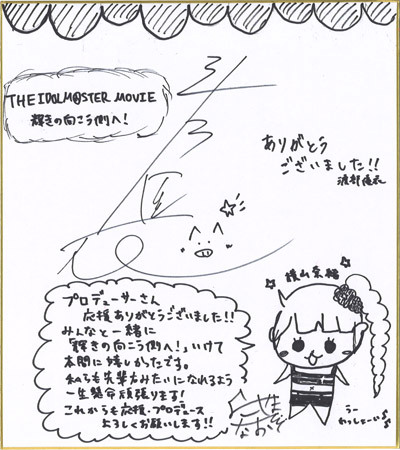 THE IDOLM@STER MOVIE
輝きの向こう側へ!
ありがとう
ございました!!
渡部優衣
横山奈緒
プロデューサーさん
応援ありがとうございました!!
みんなと一緒に
「輝きの向こう側へ!」いけて
本間に嬉しかったです。
私らも先輩方みたいになれるよう
一生懸命頑張ります!
これからも応援・プロデュース
よろしくお願いします!!
うー
わっしょーい